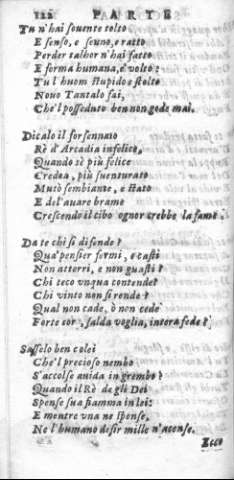 122 PARTE
Tu n'hai souente tolto
E senso, e senno, e ratto
Perder talhor n'hai fatto
E forma humana, e volto:
Tu l'huom stupido e stolto
Nouo Tantalo fai,
Che'l posseduto ben non gode mai.
Dicalo il forsennato
Rè d'Arcadia infelice,
Quando sè più felice
Credea, più suenturato
Mutò sembiante, e stato
E del'auare brame
Crescendo il cibo ognor crebbe la fame.
Da te chi si difende?
Qua' pensier fermi, e casti
Non atterri, e non guasti?
Chi teco vnqua contende?
Chi vinto non si rende?
Qual non cade, ò non cede
Forte cor, salda voglia, intera fede?
Sasselo ben colei
Che'l precioso nembo
S'accolse auida in grembo?
Quando il Rè de gli Dei
Spense sua fiamma in lei:
E mentre vna ne spense,
Ne l'humano desir mille n'accense.
Ecco